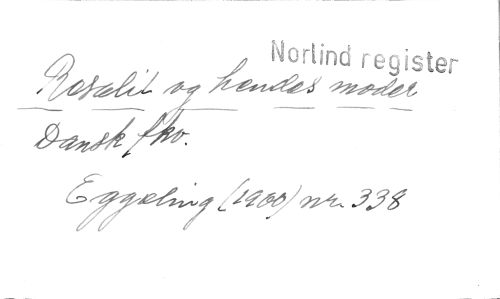 Norlind register
Roselil og hendes moder
Dansk fkv.
Eggeling (1900) nr. 338